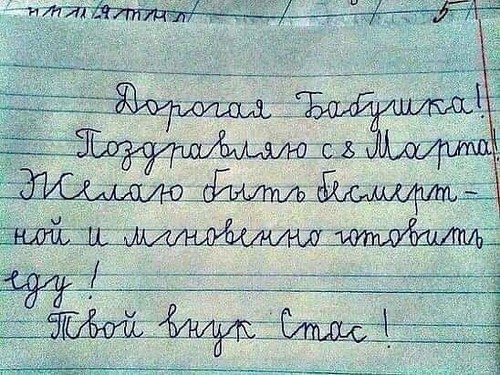 5
Дорогая Бабушка!
Поздравляю с 8 Марта!
Желаю быть бесмерт-
ной и мгновенно готовить
еду!
Твой внук Стас!